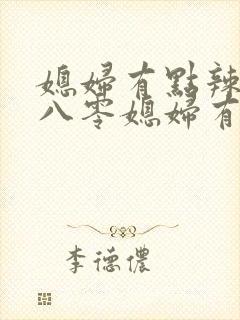 媳婦有點辣
八零媳婦有
李德儂